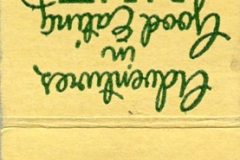 Adventures
in
Good Eating